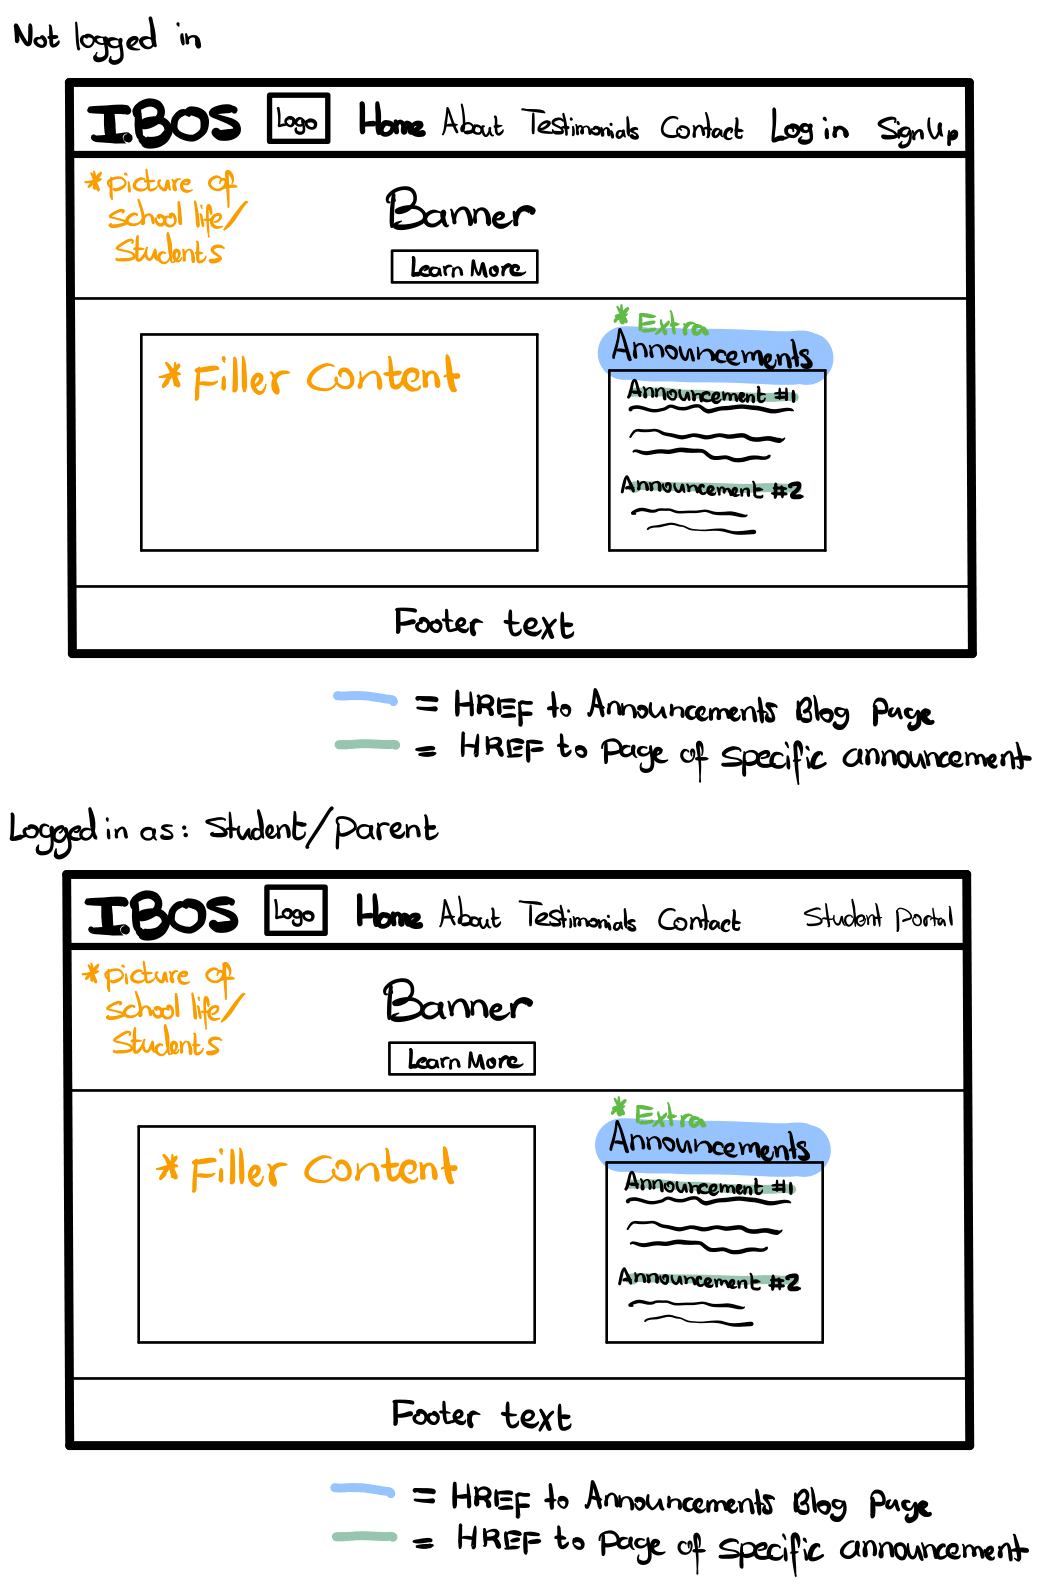 Not logged in
I.BOS Logo Home About Testimonials Contact Log in Sign Up
*picture of
school life/
Students
Banner
Learn More
*Filler Content
* Extra
Announcements
Announcement #1
Announcement #2
Footer text
= HREF to Announcements Blog Page
= HREF to Page of specific announcement
Logged in as: Student/Parent
I.BOS Logo Home About Testimonials Contact Student Portal
*picture of
school life/
Students
Banner
Learn More
*Filler Content
* Extra
Announcements
Announcement #1
Announcement #2
Footer text
= HREF to Announcements Blog Page
= HREF to Page of specific announcement